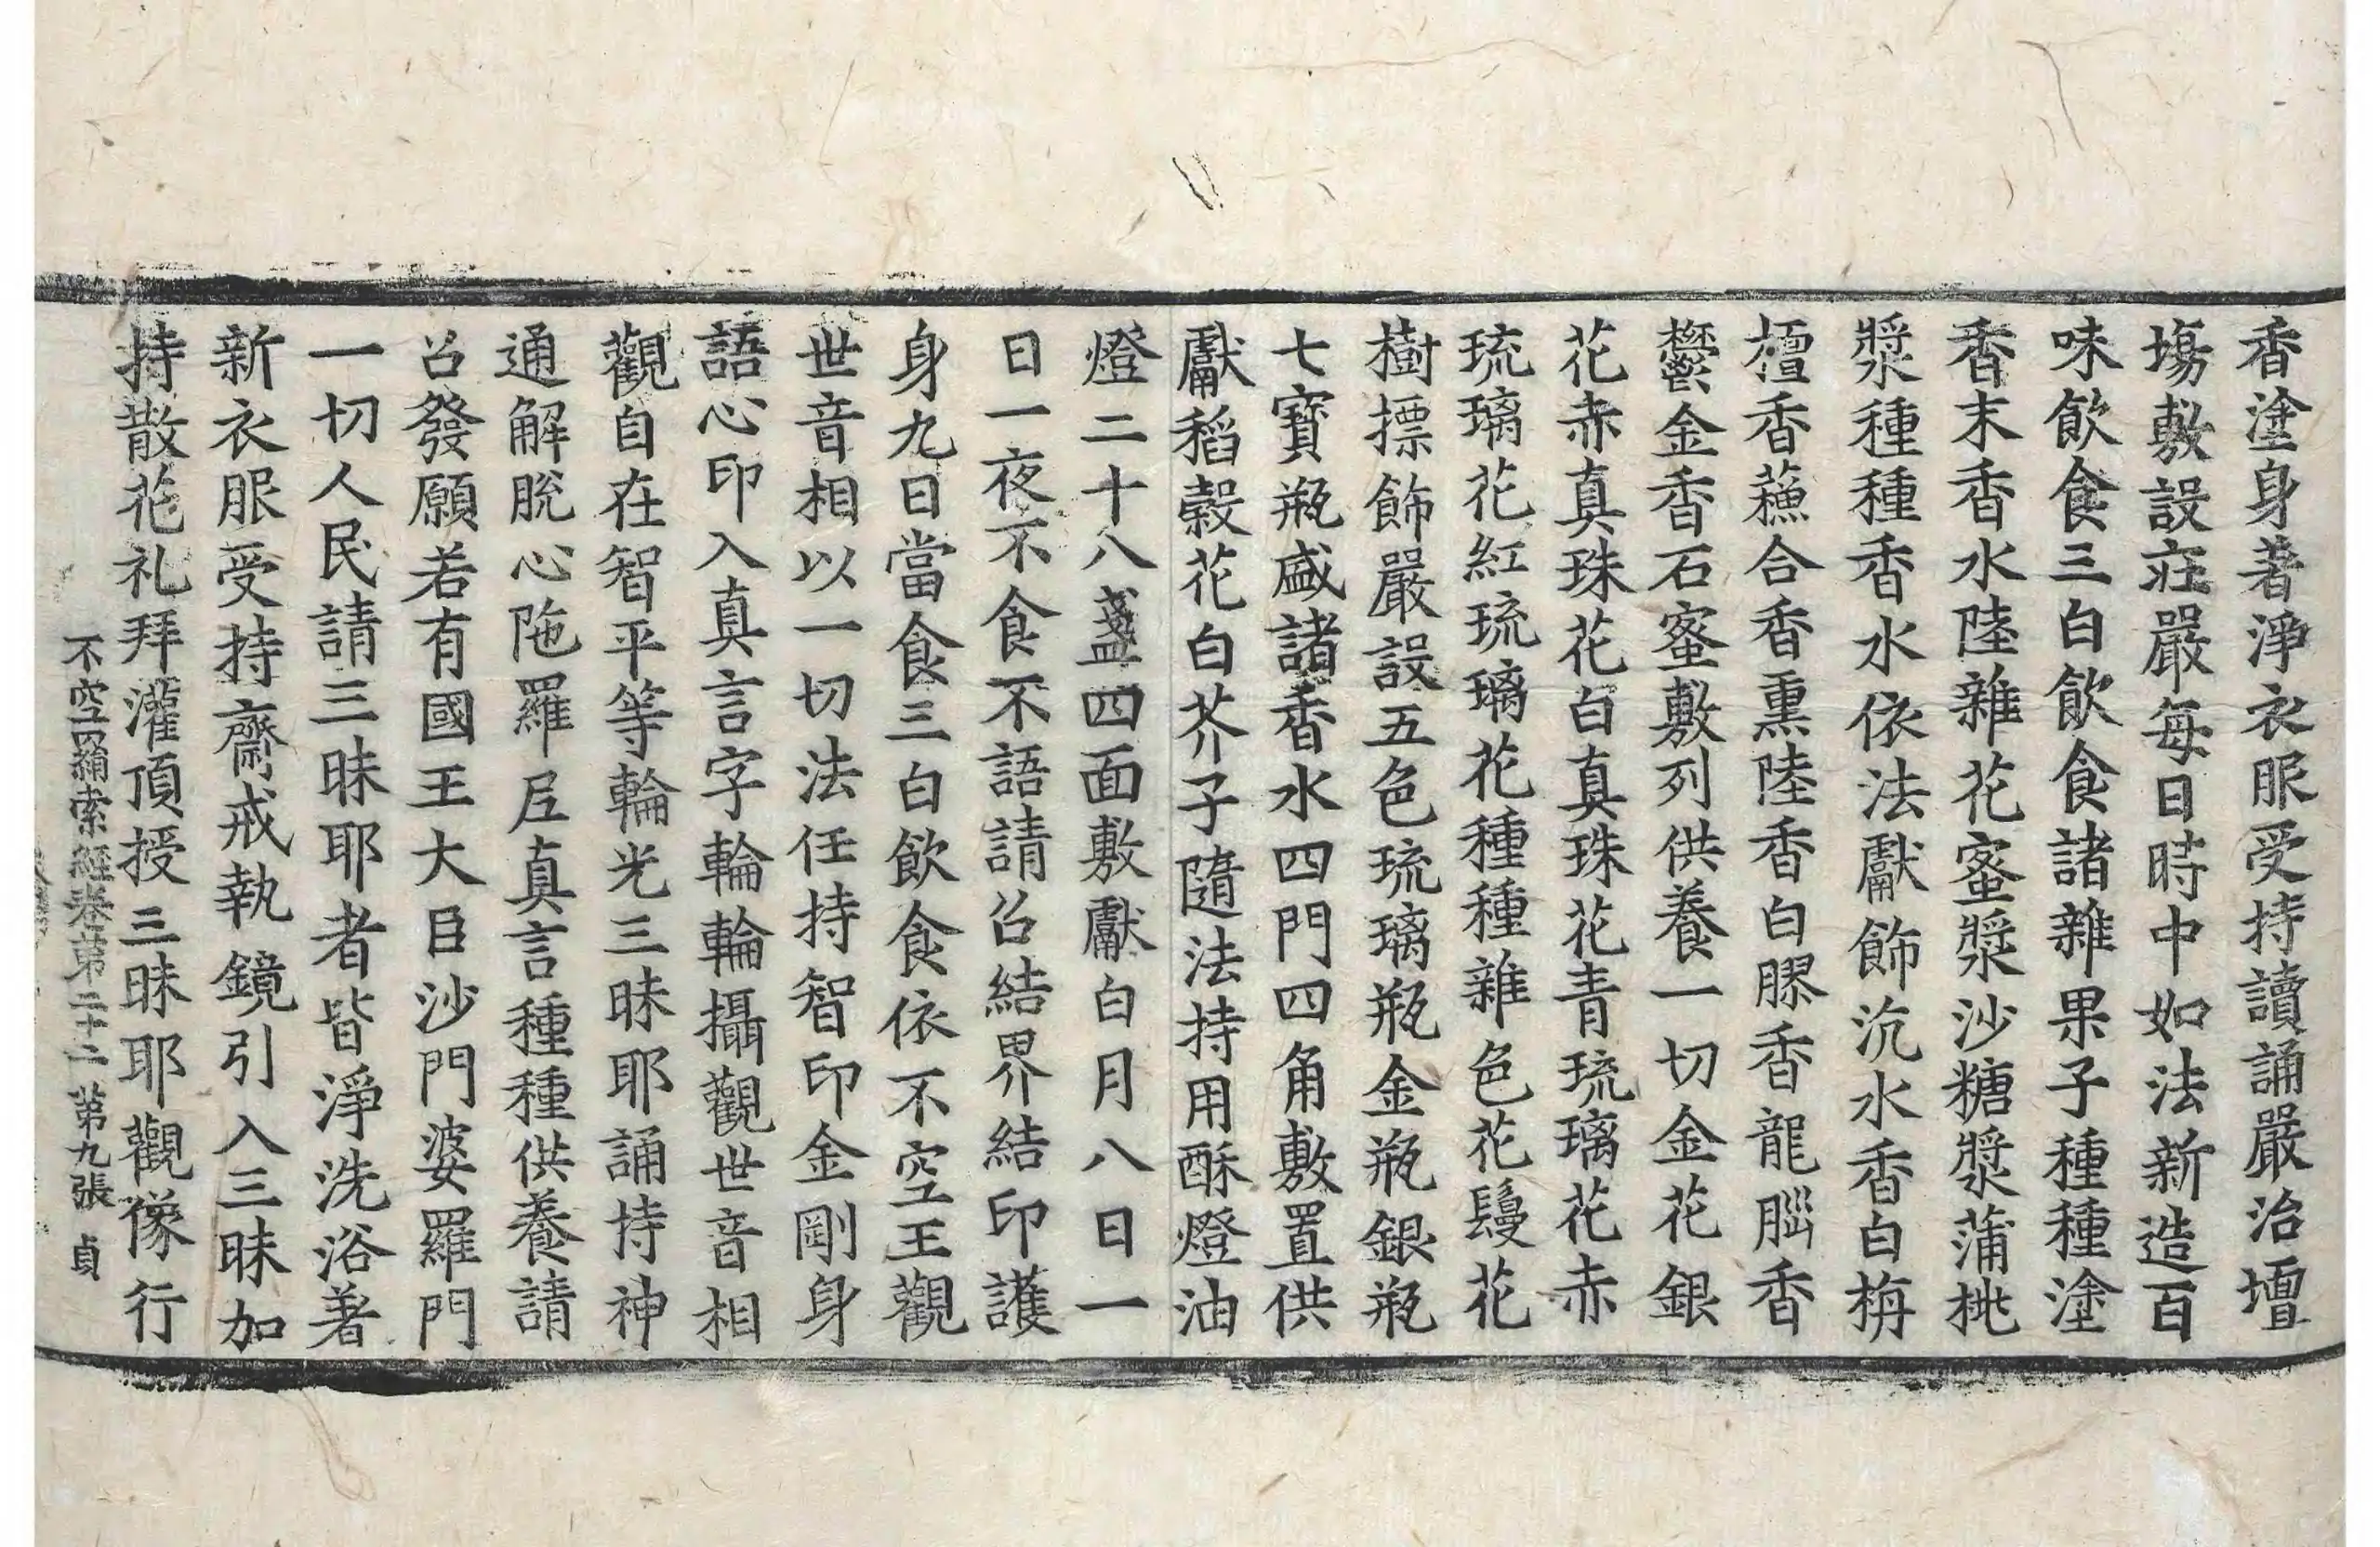 香塗身著淨衣服受持讀誦嚴治壇
場敷設莊嚴每日時中如法新造百
味飲食三白飲食諸雜果子種種塗
香末香水陸雜花蜜漿沙糖漿蒲桃
漿種種香水依法獻飾沉水香白栴
檀香蘓合香熏陸香白膠香龍腦香
欝金香石蜜敷列供養一切金花銀
花赤真珠花白真珠花青琉璃花赤
琉璃花紅琉璃花種種雜色花鬘花
樹摽飾嚴設五色琉璃瓶金瓶銀瓶
七寶瓶盛諸香水四門四角敷置供
獻稻穀花白芥子隨法持用酥燈油
燈二十八盞四面敷獻白月八日一
日一夜不食不語請召結界結印護
身九日當食三白飲食依不空王觀
世音相以一切法任持智印金剛身
語心印入真言字輪輪攝觀世音相
觀自在智平等輪光三昧耶誦持神
通解脫心陁羅尼真言種種供養請
召發願若有國王大臣沙門婆羅門
一切人民請三昧耶者皆淨洗浴著
新衣服受持齋戒執鏡引入三昧加
持散花礼拜灌頂授三昧耶觀像行
不空罥索經卷第二十二 第九張 貞